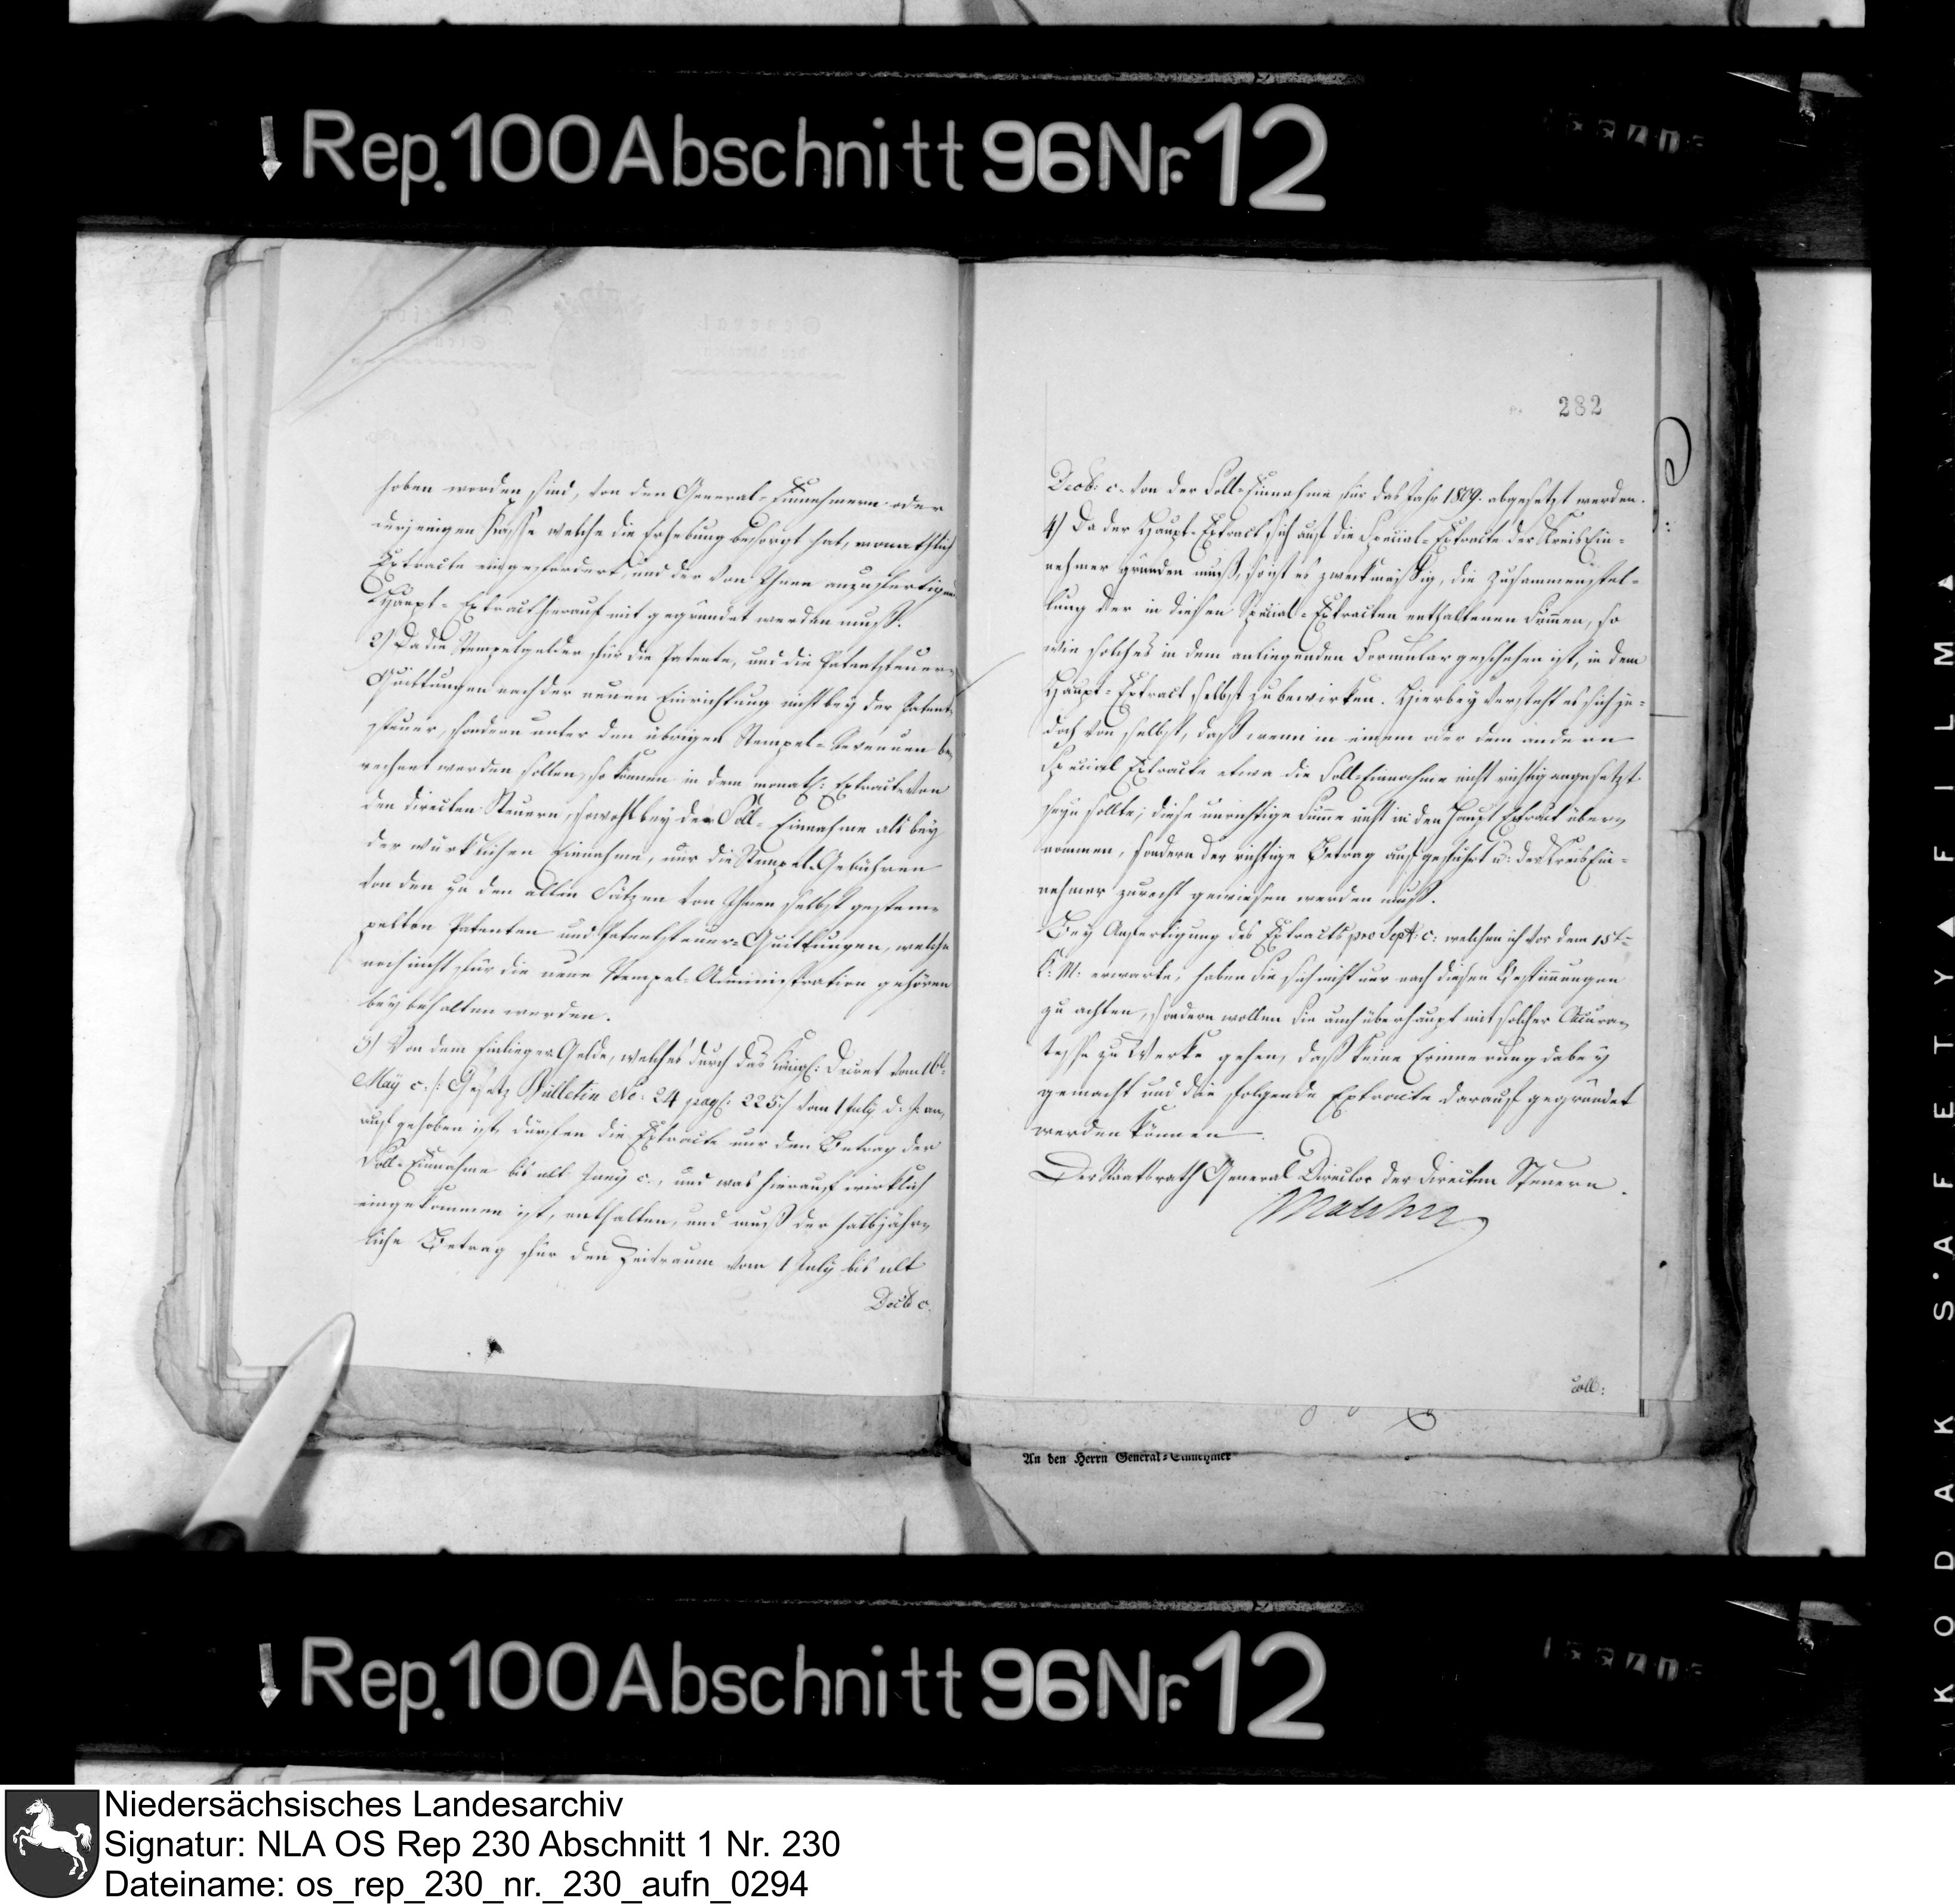 Rep. 100 Abschnitt 96 Nr. 12
282
hoben worden sind, von den General-Einnehmern oder
derjenigen Kasse welche die Erhebung besorgt hat, monathlich
Extracte eingefordert, und der von Ihnen anzufertigende
Haupt-Extract hierauf mit gegründet werden muß.
2) Da die Stempelgelder für die Patente, und die Patentsteuer-
Quittungen nach der neuen Einrichtung nicht bey der Patent-
steuer, sondern unter den übrigen Stempel-Revenuen be-
rechnet werden sollen, so können in dem monatl: Extracte von
den directen Steuern, sowohl bey der Soll-Einnahme als bey
der würklichen Einnahme, nur die Stempel-Gebühren
von den zu den alten Sätzen von Ihnen selbst gestem-
pelten Patenten und Patentsteuer-Quittungen, welche
noch nicht für die neue Stempel-Administration gehören
bey behalten werden.
3) Von dem Einlieger-Gelde, welches durch das Königl: Decret vom
May c. /: Gesetz Bülletin No: 24 pag: 225 :/ vom 1 July d. J. an,
aufgehoben ist, dürfen die Extracte nur den Betrag der
Soll-Einnahme bis ult Juny c., und was hierauf wirklich
eingekommen ist, enthalten, und muß der halbjähr-
liche Betrag für den Zeitraum vom 1 July bis ult
Decb c.
Decb: c. von der Soll-Einnahme für das Jahr 1809. abgesetzt werden.
4) Da der Haupt-Extract sich auf die Special-Extracte der Kreis Ein-
nehmer gründen muß, so ist es zweckmäßig, die Zusammenstel-
lung der in diesen Special-Extracten enthaltenen Summen, so
wie solches in dem anliegenden Formular geschehen ist, in dem
Haupt-Extract selbst zu bewirken. Hierbey versteht es sich je-
doch von selbst, daß wenn in einem oder dem andern
Special Extracte etwa die Soll-Einnahme nicht richtig angesetzt
seyn sollte, diese unrichtige Summe nicht in den Haupt Extract über-
nommen, sondern der richtige Betrag aufgeführt u: der Kreis Ein-
nehmer zurecht gewiesen werden muß.
Bey Anfertigung des Extracts pro Sept: c: welchen ich vor dem 15t
k: M: erwarte, haben Sie sich nicht nur nach diesen Bestimmungen
zu achten, sondern wollen Sie auch überhaupt mit solcher Accura-
tesse zu Werke gehen, daß keine Erinnerung dabey
gemacht und die folgende Extracte darauf gegründet
werden können.
Der Staatsrath General Director der directen Steuern.
coll:
An den Herrn General-Einnehmer
Rep. 100 Abschnitt 96 Nr. 12
KODAK SAFETY FILM
Niedersächsisches Landesarchiv
Signatur: NLA OS Rep 230 Abschnitt 1 Nr. 230
Dateiname: os_rep_230_nr._230_aufn_0294